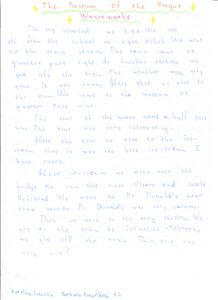 The Museum of the Prague
Waxworks
The trip started at 8:00. We set
off from the school at eight o'clock. We went
to the train station. The train came at
quarter past eight. At Smíchov station we
got off the train. The weather was very
good. It was sunny. After that we went to
the tram. We came to the museum at
quarter past nine.
The tour of the museum was half past
nine. The tour was very interesting.
After the tour we went to the ice-
cream shop. It was the best ice-cream I
have ever.
After ice-cream we went over the
bridge. We saw the river Vltava and castle
We went to the McDonald's near
station. McDonald's was very yummy.
Then we went to the station. We
got on the train to
we got off the train. This trip was
very nice!
Karolína Barbora